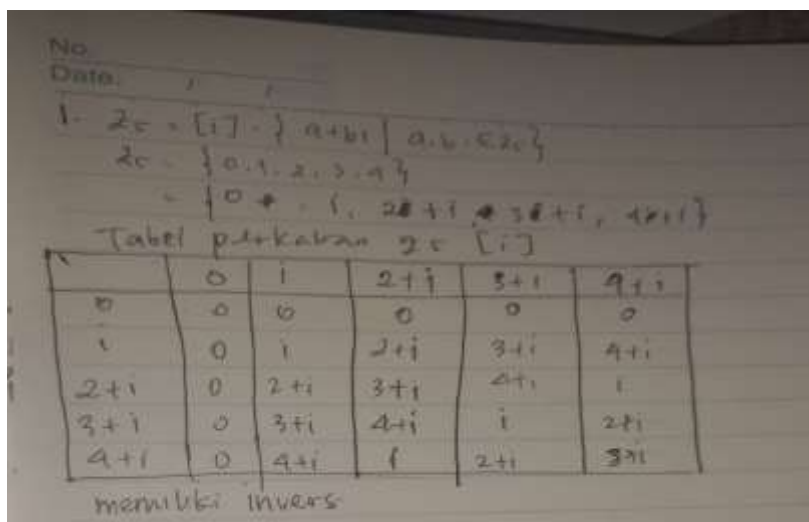 No.
Date.
1. Z5 = [i] = { a+bi | a.b. ∈ Z5}
Z5 = {0.1.2.3.4}
= {0 . i, 2 +i 3 +i, 4+i}
Tabel perkalian Z5 [i]
0 i 2+i 3+i 4+i
0 0 0 0 0 0
i 0 i 2+i 3+i 4+i
2+i 0 2+i 3+i 4+i i
3+i 0 3+i 4+i i 2+i
4+i 0 4+i i 2+i 3+i
memiliki invers